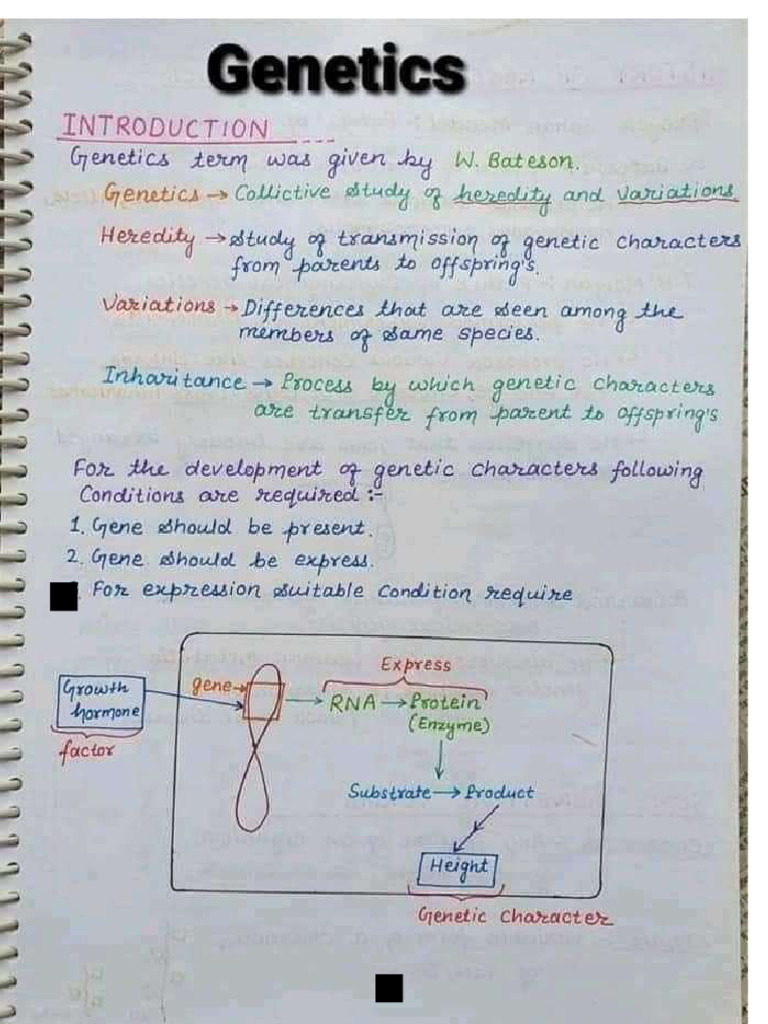 Genetics
INTRODUCTION
Genetics term was given by W. Bateson.
Genetics → Collictive study of heredity and variations
Heredity → Study of transmission of genetic characters
from parents to offspring's.
Variations → Differences that are seen among the
members of same species.
Inharitance → Process by which genetic characters
are transfer from parent to offspring's
For the development of genetic characters following
Conditions are required :-
1. Gene should be present.
2. Gene should be express.
For expression suitable condition require
Express
Growth
hormone
factor
gene→
→ RNA → Protein
(Enzyme)
Substrate → Product
Height
Genetic Character